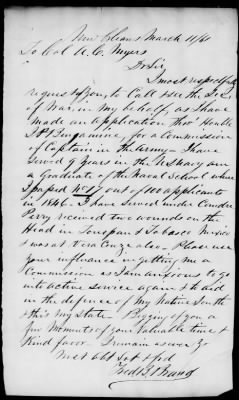 New Orleans March 11/61
To Col A. C. Myers
Dr Sir
I most respectfully
request of you, to Call & see the Secr
of War, in my behalf, as I have
made an application thro' Honble
J. P. Benjamine, for a Commission
of Captain in the Army - I have
Served 9 years in the US Navy am
a Graduate of the Naval School where
I passed No 17 out of 100 applicants
in 1846. I have Served under Comdre
Perry received two wounds on the
Head in Tuxpan & Tabasco Mexico
& was at Vera Cruze also - Please use
your influence in getting me a
Commission as I am anxious to go
into active service again & to aid
in the defence of My Native South
& this My State. Begging of you a
few Moments of your Valuable time &
Kind favor. I remain as ever yr
most obt Svt & frd
Fredk B. Brand